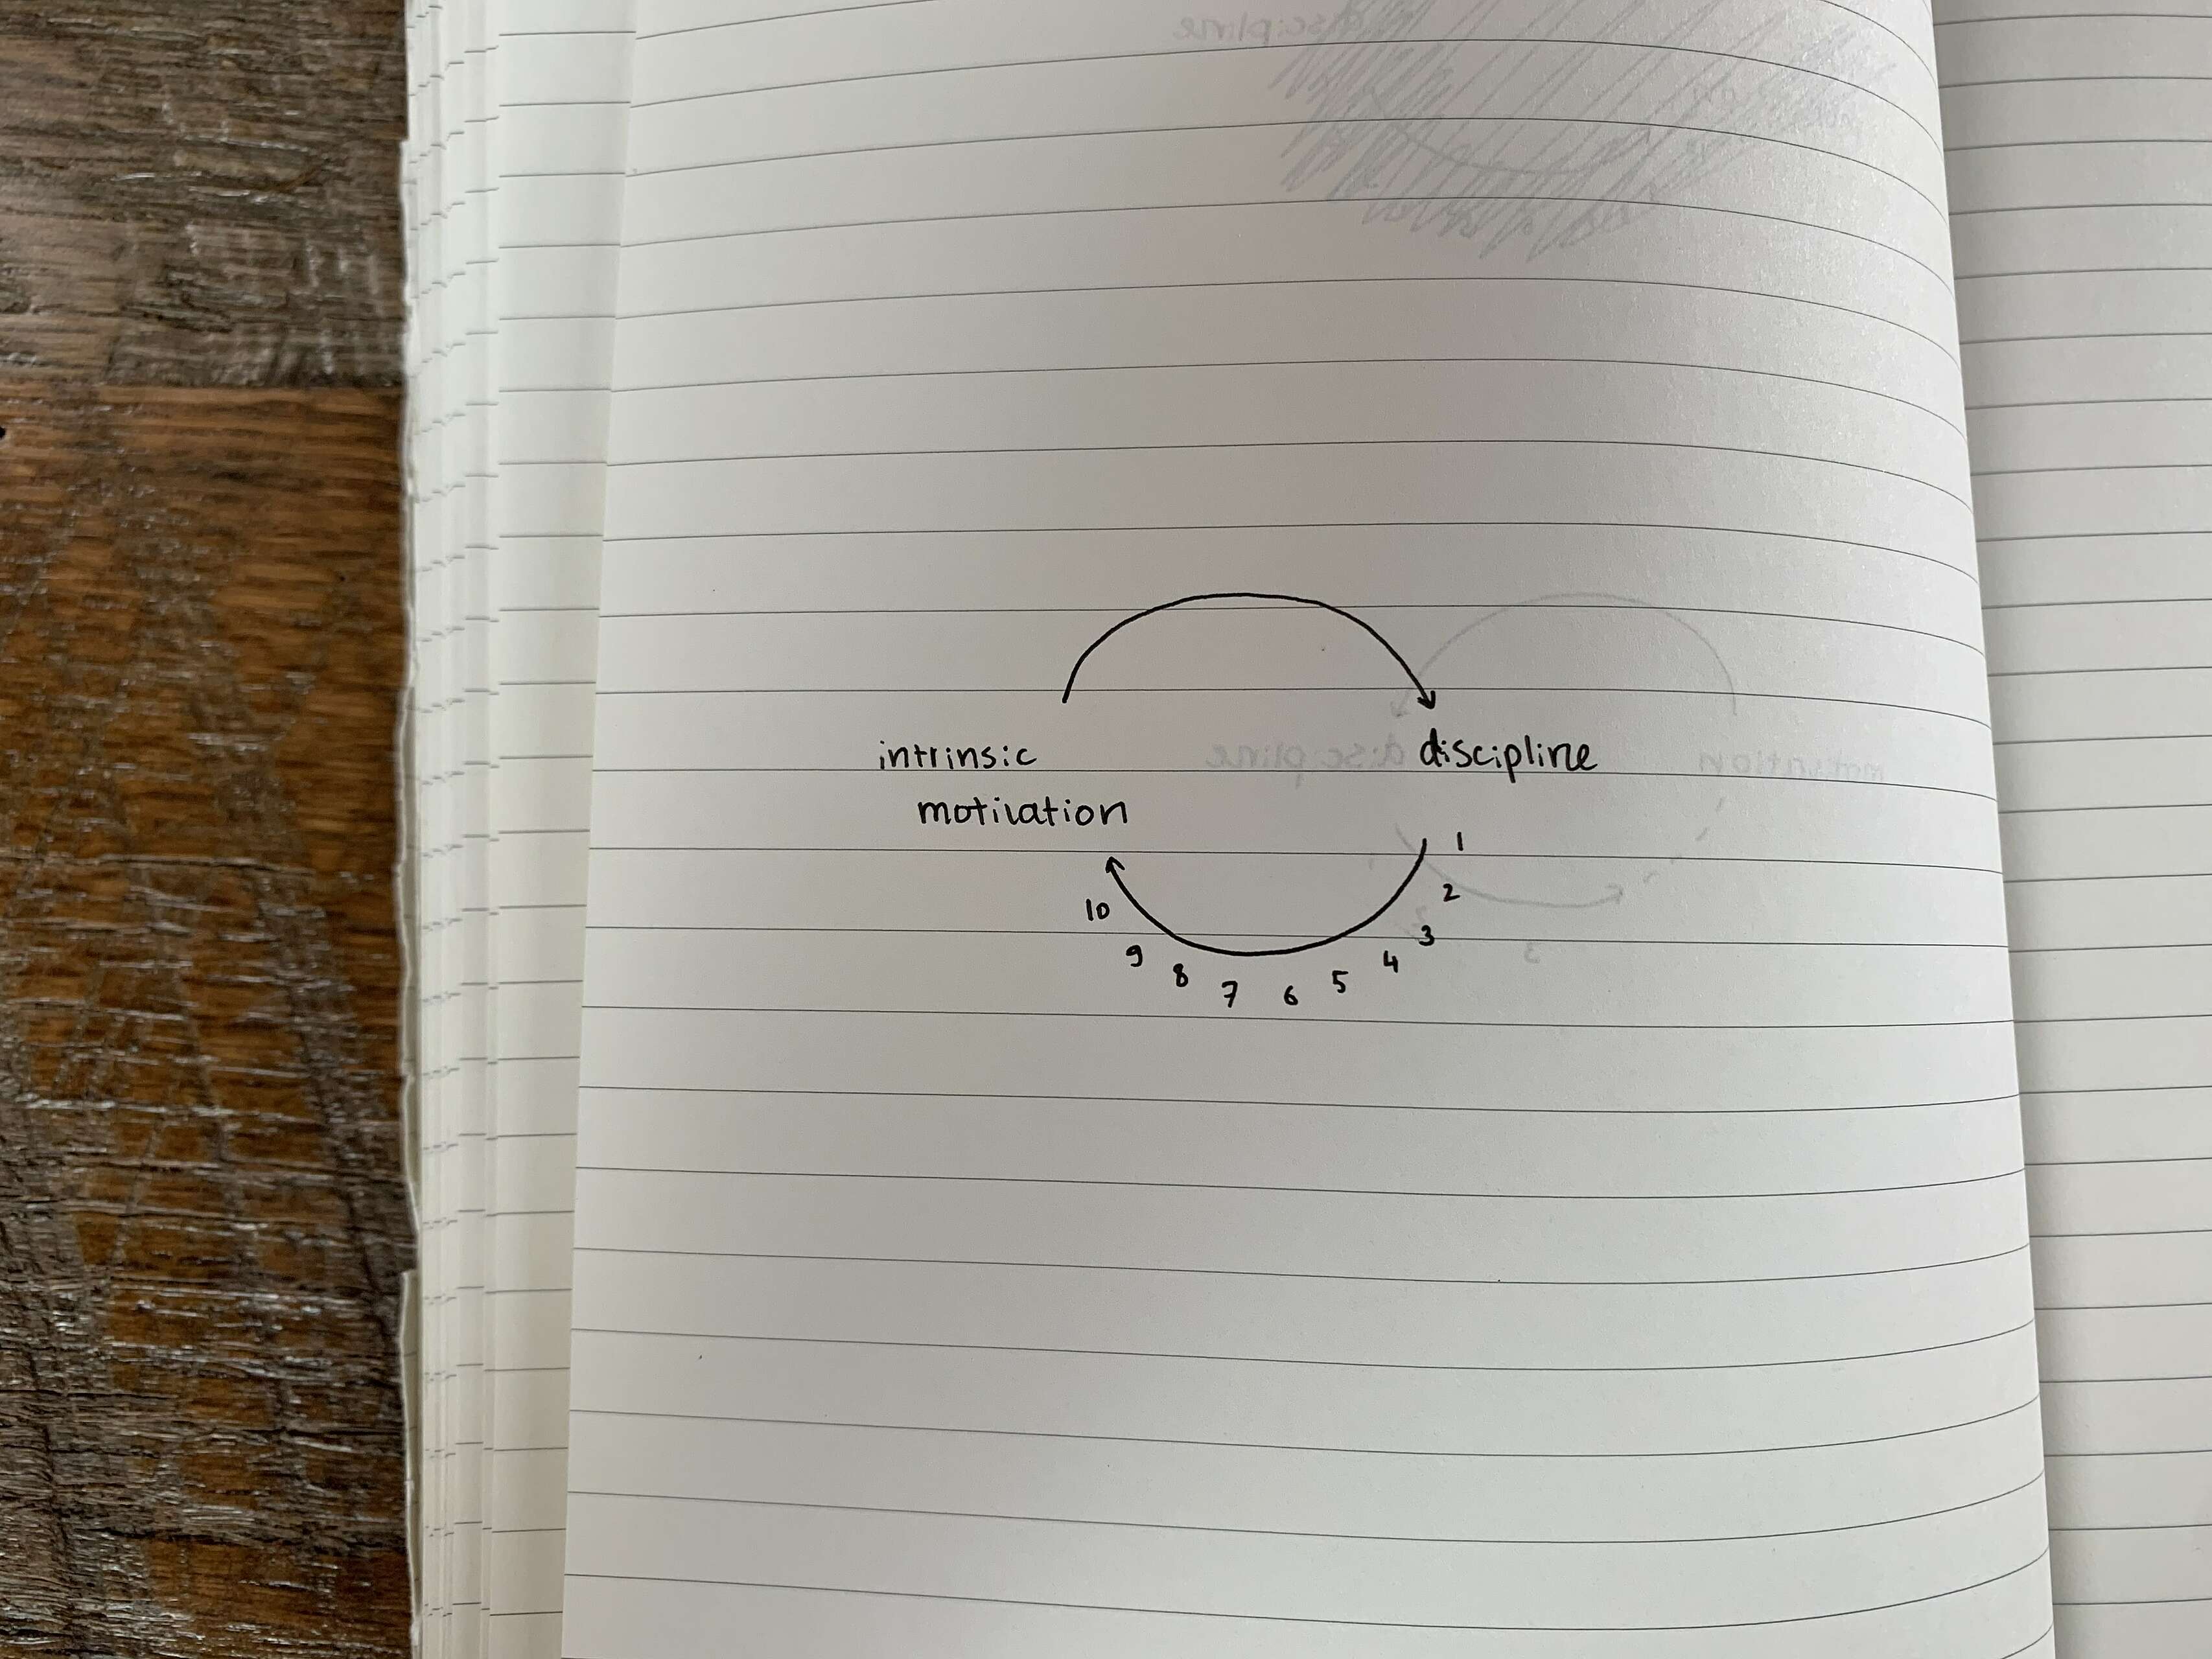 intrinsic discipline
motivation
1
2
3
4
5
6
7
8
9
10